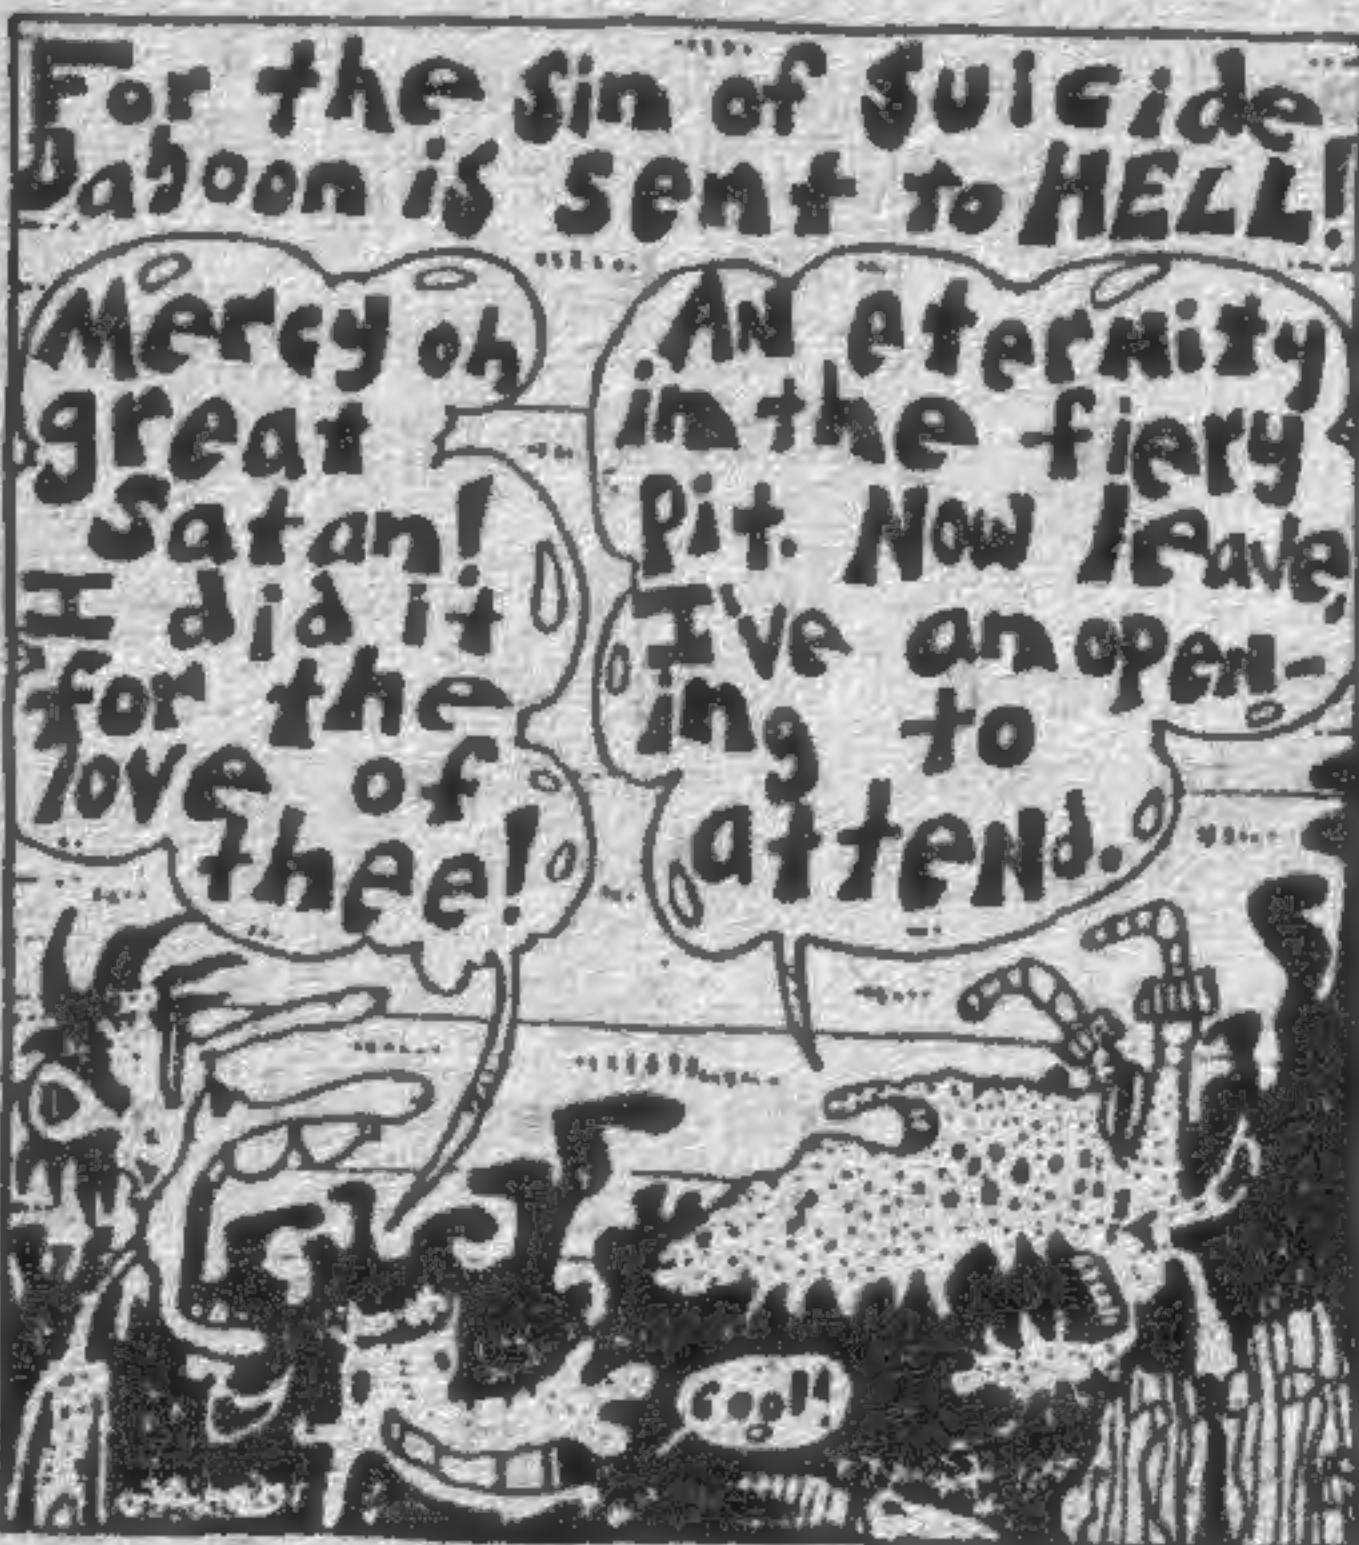 For the Sin of Suicide
Daboon is sent to HELL!
Mercy oh
great
satan!
I did it
for the
love of
thee!
AN eternity
in the fiery
Pit. Now leave,
I've an open-
ing to
attend.
Cool!